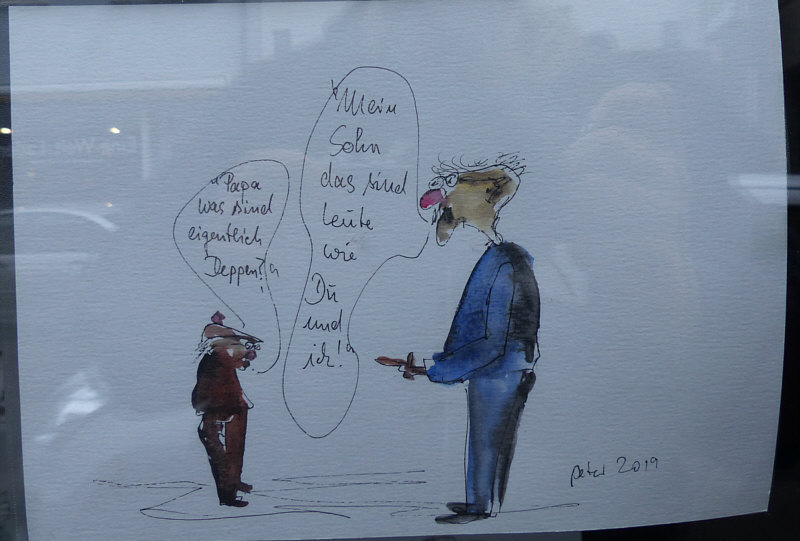 "Papa
was sind
eigentlich
Deppen?"
"Mein
Sohn
das sind
Leute
wie
Du
und
ich!"
peter 2019